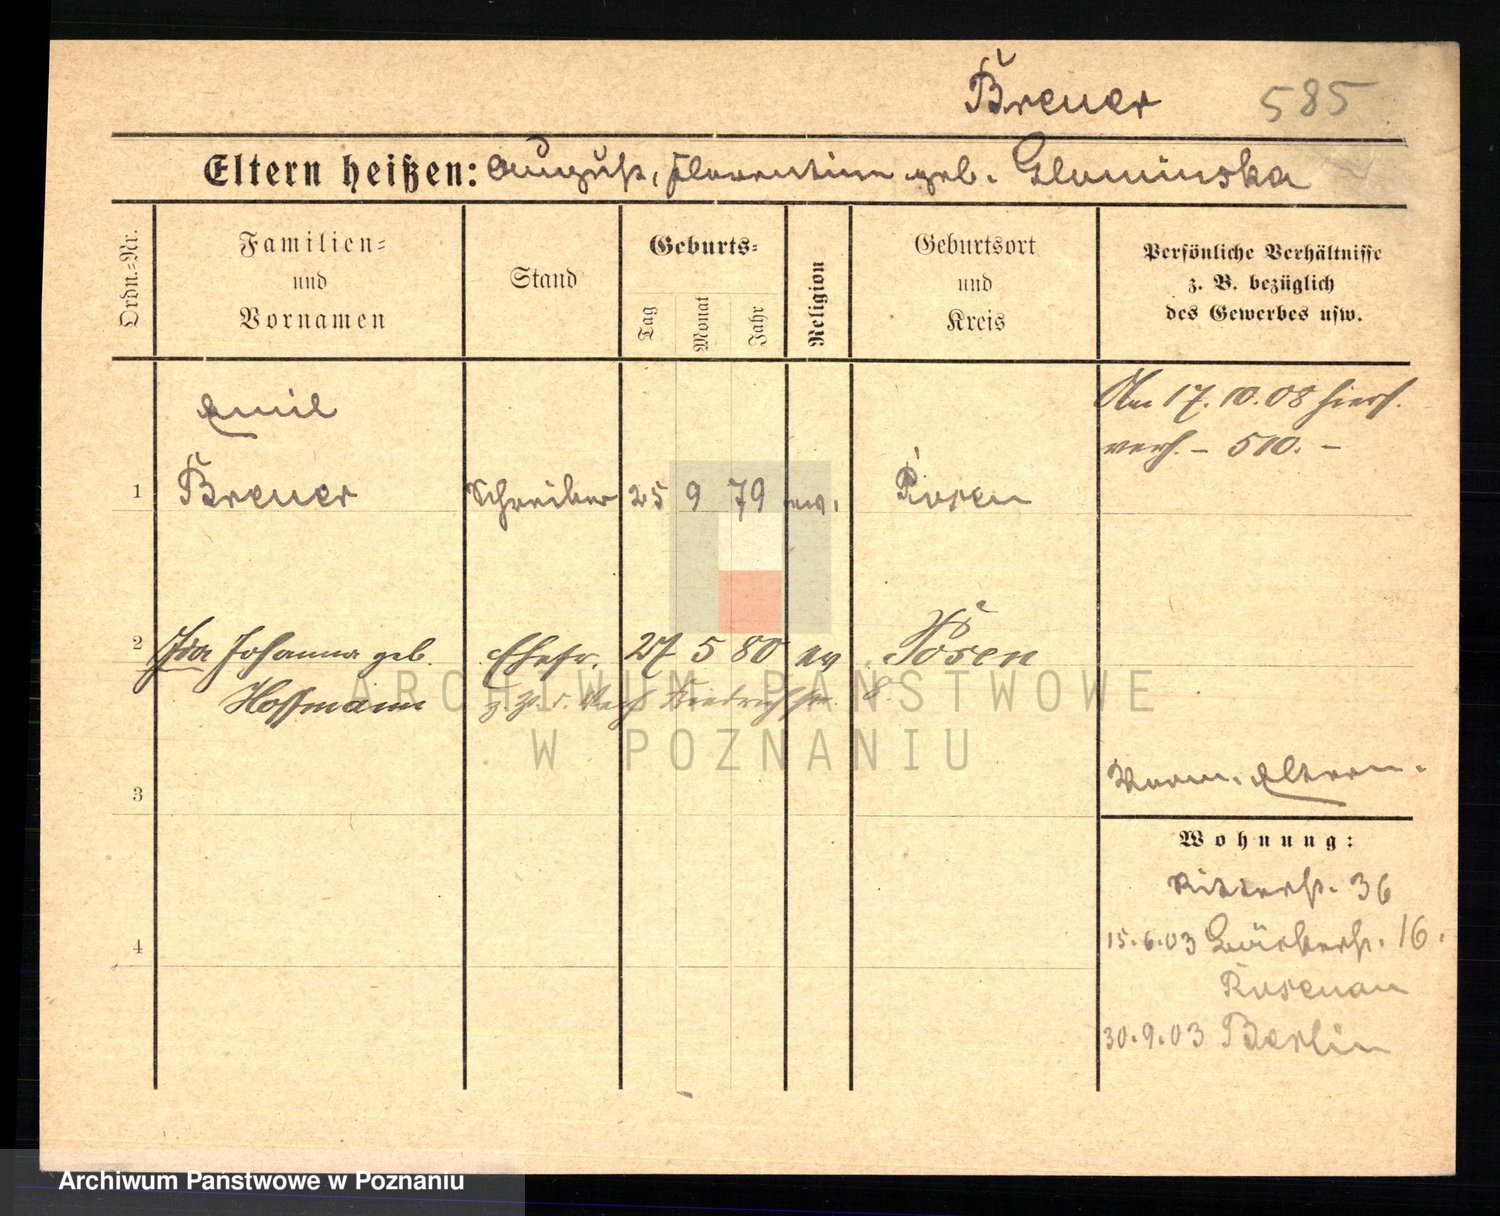 Breuer 585
Eltern heißen: August, Florentine geb. Glominska
Ordn.-Nr.
Familien-
und
Vornamen
Stand
Geburts-
Tag
Monat
Jahr
Religion
Geburtsort
und
Kreis
Persönliche Verhältnisse
z. B. bezüglich
des Gewerbes usw.
Emil
Am 17.10.08 hiers.
verh. – 510. –
1 Breuer Schreiber 25 9 79 ev. Posen
2 Ida Johanna geb. Ehefr. 27 5 80 ev Posen
Hoffmann
3
Vorm. Eltern.
Wohnung:
Ritterstr. 36
4
15.6.03 16.
Posenau
30.9.03 Berlin
ARCHIWUM PAŃSTWOWE
W POZNANIU
Archiwum Państwowe w Poznaniu